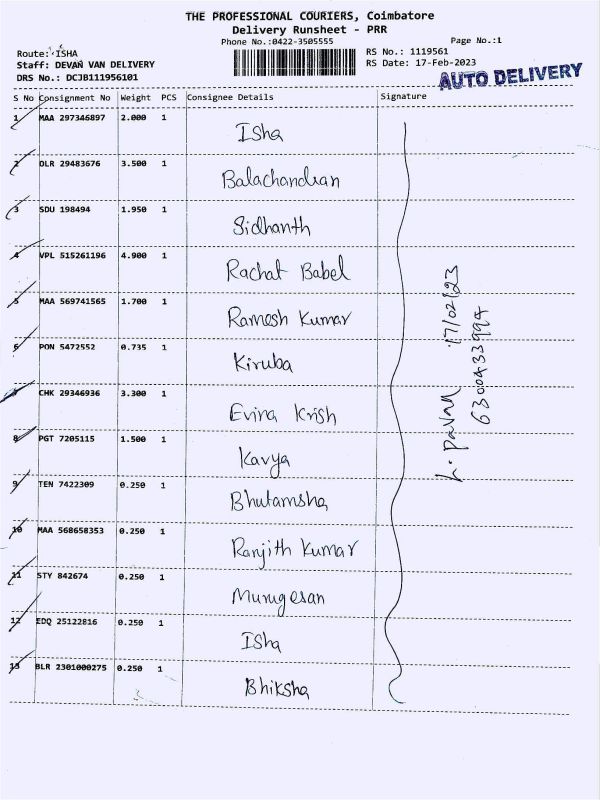 THE PROFESSIONAL COURIERS, Coimbatore
Delivery Runsheet - PRR
Phone No.:0422-3505555 Page No.:1
Route: ISHA RS No.: 1119561
Staff: DEVAN VAN DELIVERY RS Date: 17-Feb-2023
DRS No.: DCJB111956101 AUTO DELIVERY
S No Consignment No Weight PCS Consignee Details Signature
1 MAA 297346897 2.000 1 Isha
2 DLR 29483676 3.500 1 Balachandran
3 SDU 198494 1.950 1 Sidhanth
4 VPL 515261196 4.900 1 Rachat Babel
5 MAA 569741565 1.700 1 Ramesh Kumar
6 PON 5472552 0.735 1 Kiruba
7 CHK 29346936 3.300 1 Evina Krish
8 PGT 7205115 1.500 1 Kavya
9 TEN 7422309 0.250 1 Bhutamsha
10 MAA 568658353 0.250 1 Ranjith Kumar
11 STY 842674 0.250 1 Murugesan
12 EDQ 25122816 0.250 1 Isha
13 BLR 2301000275 0.250 1 Bhiksha
L. Pavan 17/02/23
6300433994